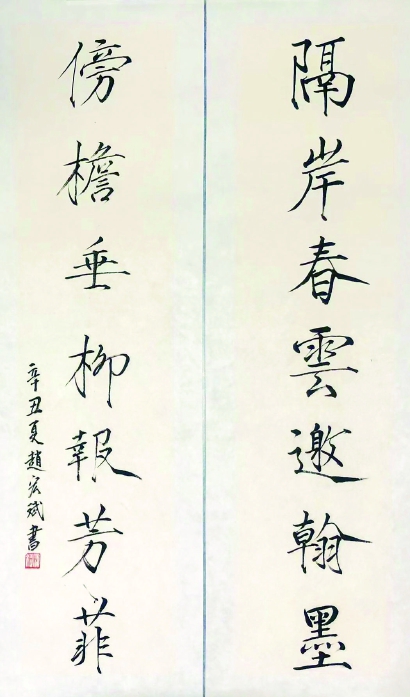 隔岸春雲邀翰墨
傍檐垂柳報芳菲
辛丑夏趙宏斌書